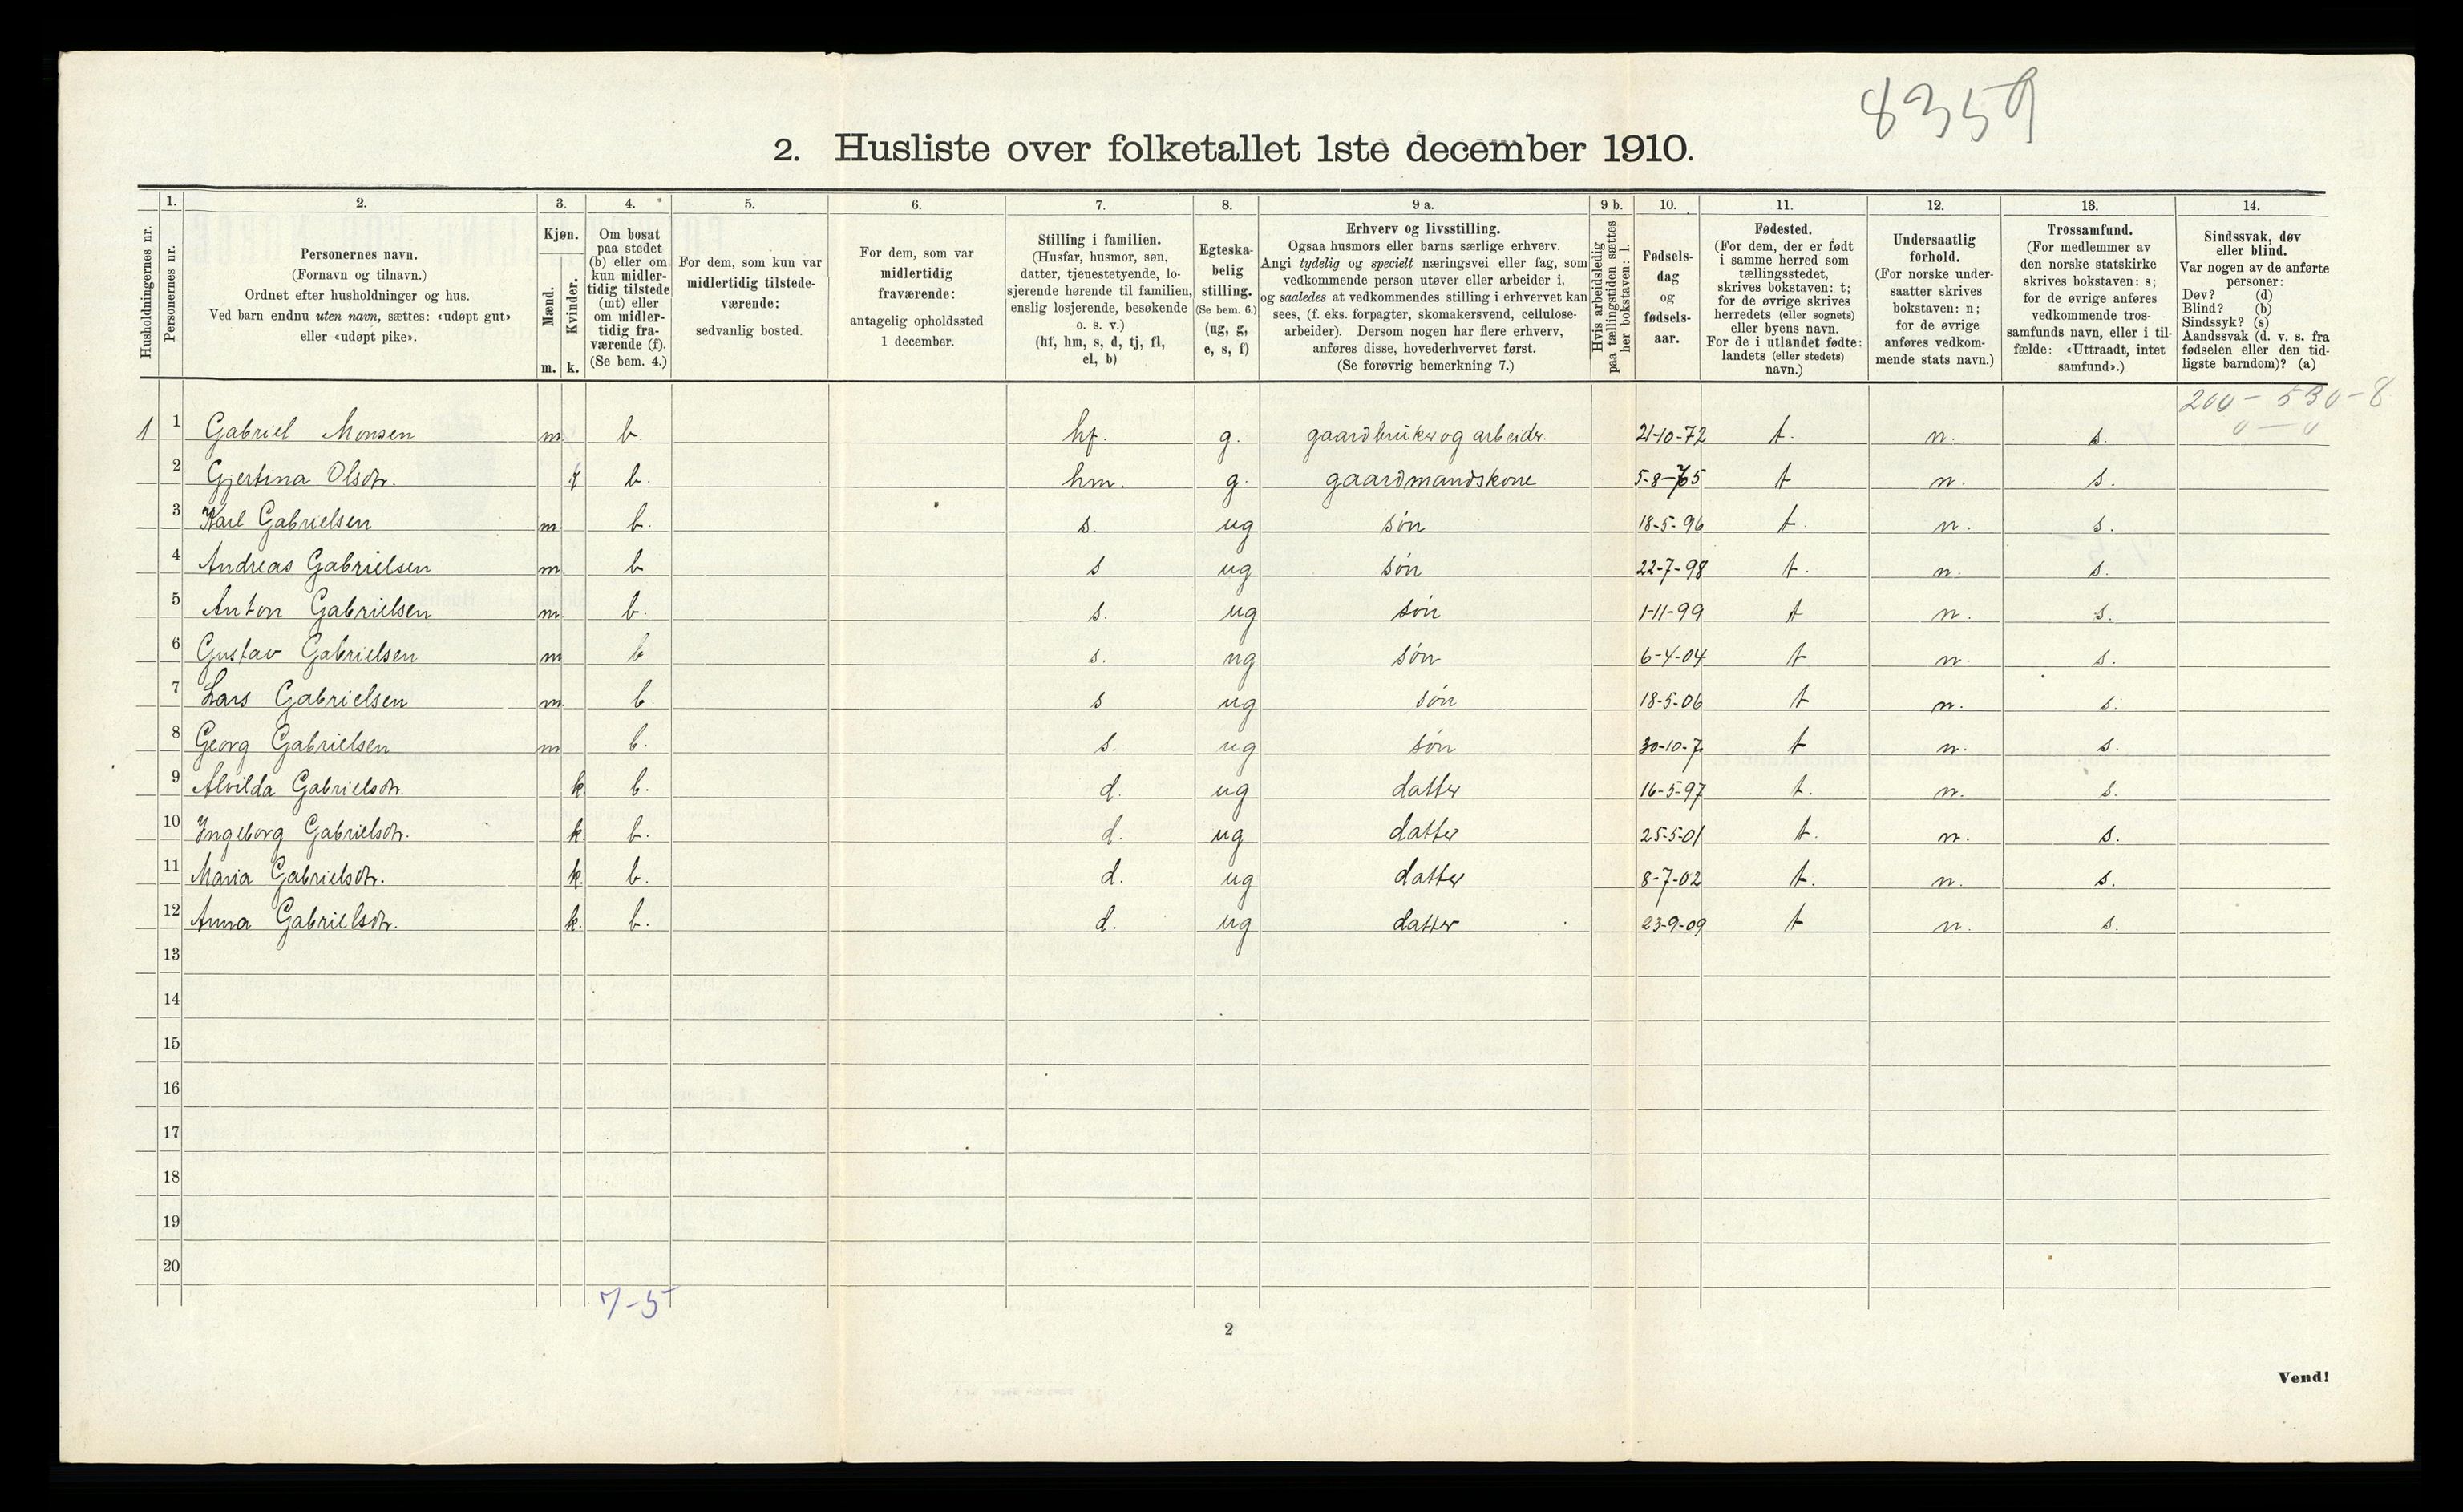 8359
2. Husliste over folketallet 1ste december 1910.
1. 2. 3. 4. 5. 6. 7. 8. 9 a. 9 b. 10. 11. 12. 13. 14.
Husholdningernes nr.
Personernes nr.
Personernes navn.
(Fornavn og tilnavn.)
Ordnet efter husholdninger og hus.
Ved barn endnu uten navn, sættes: «udøpt gut»
eller «udøpt pike».
Kjøn.
Mænd.
Kvinder.
m. k.
Om bosat
paa stedet
(b) eller om
kun midler-
tidig tilstede
(mt) eller
om midler-
tidig fra-
værende (f).
(Se bem. 4.)
For dem, som kun var
midlertidig tilstede-
værende:
sedvanlig bosted.
For dem, som var
midlertidig
fraværende:
antagelig opholdssted
1 december.
Stilling i familien.
(Husfar, husmor, søn,
datter, tjenestetyende, lo-
sjerende hørende til familien,
enslig losjerende, besøkende
o. s. v.)
(hf, hm, s, d, tj, fl,
el, b)
Egteska-
belig
stilling.
(Se bem. 6.)
(ug, g,
e, s, f)
Erhverv og livsstilling.
Ogsaa husmors eller barns særlige erhverv.
Angi tydelig og specielt næringsvei eller fag, som
vedkommende person utøver eller arbeider i,
og saaledes at vedkommendes stilling i erhvervet kan
sees, (f. eks. forpagter, skomakersvend, cellulose-
arbeider). Dersom nogen har flere erhverv,
anføres disse, hovederhvervet først.
(Se forøvrig bemerkning 7.)
Hvis arbeidsledig
paa tællingstiden sættes
her bokstaven: l.
Fødsels-
dag
og
fødsels-
aar.
Fødested.
(For dem, der er født
i samme herred som
tællingsstedet,
skrives bokstaven: t;
for de øvrige skrives
herredets (eller sognets)
eller byens navn.
For de i utlandet fødte:
landets (eller stedets)
navn.)
Undersaatlig
forhold.
(For norske under-
saatter skrives
bokstaven: n;
for de øvrige
anføres vedkom-
mende stats navn.)
Trossamfund.
(For medlemmer av
den norske statskirke
skrives bokstaven: s;
for de øvrige anføres
vedkommende tros-
samfunds navn, eller i til-
fælde: «Uttraadt, intet
samfund».)
Sindssvak, døv
eller blind.
Var nogen av de anførte
personer:
Døv? (d)
Blind? (b)
Sindssyk? (s)
Aandssvak (d. v. s. fra
fødselen eller den tid-
ligste barndom)? (a)
200 - 530 - 8
0 — 0
1 1 Gabriel Monsen m b. hf. g. gaardbruker og arbeider. 21-10-72 t. n. s.
2 Gjertina Olsdtr. k b. hm. g. gaardmandskone 5-8-75 t n. s.
3 Karl Gabrielsen m b. s. ug søn 18-5-96 t. n. s.
4 Andreas Gabrielsen m b s ug søn 22-7-98 t. n. s.
5 Anton Gabrielsen m b. s. ug søn 1-11-99 t n. s.
6 Gustav Gabrielsen m b s. ug søn 6-4-04 t n. s.
7 Lars Gabrielsen m b. s ug søn 18-5-06 t n. s.
8 Georg Gabrielsen m b. s. ug søn 30-10-7 t n. s.
9 Alvilda Gabrielsdtr. k. b. d. ug datter 16-5-97 t. n. s.
10 Ingeborg Gabrielsdtr. k. b. d. ug datter 25-5-01 t. n. s.
11 Maria Gabrielsdtr. k. b. d. ug datter 8-7-02 t. n. s.
12 Anna Gabrielsdtr. k. b. d. ug datter 23-9-09 t n. s.
13
14
15
16
17
18
19
20
7-5
2
Vend!